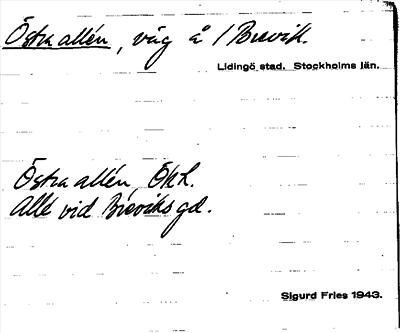 Östra allén, väg å / Brevik.
Lidingö stad. Stockholms län.
Östra allén, Ökh.
Allé vid Breviks gd.
Sigurd Fries 1943.